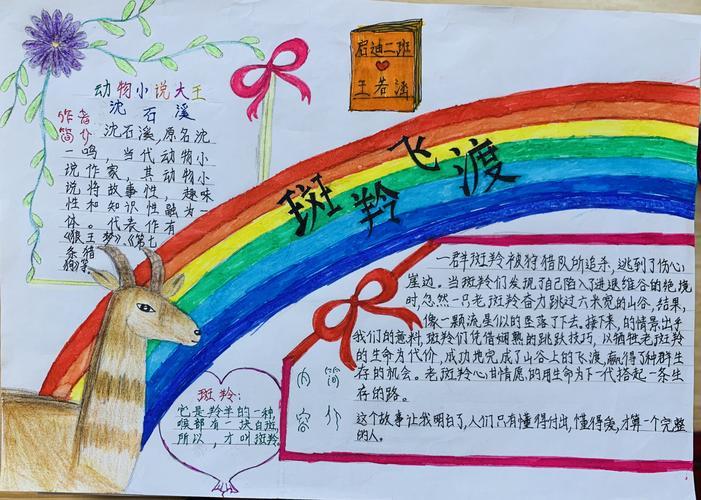 动物小说大王
沈石溪
作者
简介
沈石溪,原名沈
一鸣,当代动物小
说作家,其动物小
说将故事性,趣味
性和知识性融为一
体。代表作有
《狼王梦》《第七
条猎
狗》等。
启迪二班
王若涵
斑羚飞渡
一群斑羚被狩猎队所追杀,逃到了伤心
崖边。当斑羚们发现了自己陷入了进退维谷的绝境
时,忽然一只老斑羚奋力跳过六米宽的山谷,结果,
像一颗流星似的坠落了下去。接下来,的情景出乎
我们的意料,斑羚们凭借娴熟的跳跃技巧,以牺牲老斑羚
的生命为代价,成功地完成了山谷上的飞渡,赢得了种群生
存的机会。老斑羚心甘情愿的用生命为下一代搭起一条生
存的路。
这个故事让我明白了,人们只有懂得付出,懂得爱,才算一个完整
的人。
内容
简介
斑羚:
它是羚羊的一种,
喉部有一块白斑,
所以,才叫斑羚.